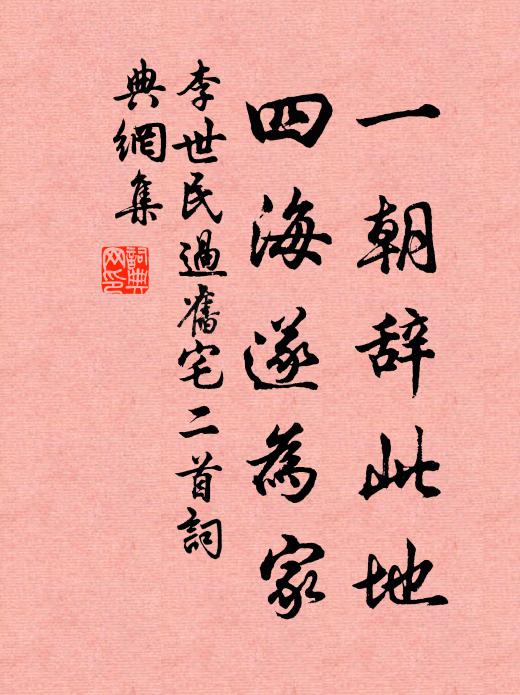 一朝辞此地
四海遂為家
李世民過舊宅二首詞
典網集
詞典
网印